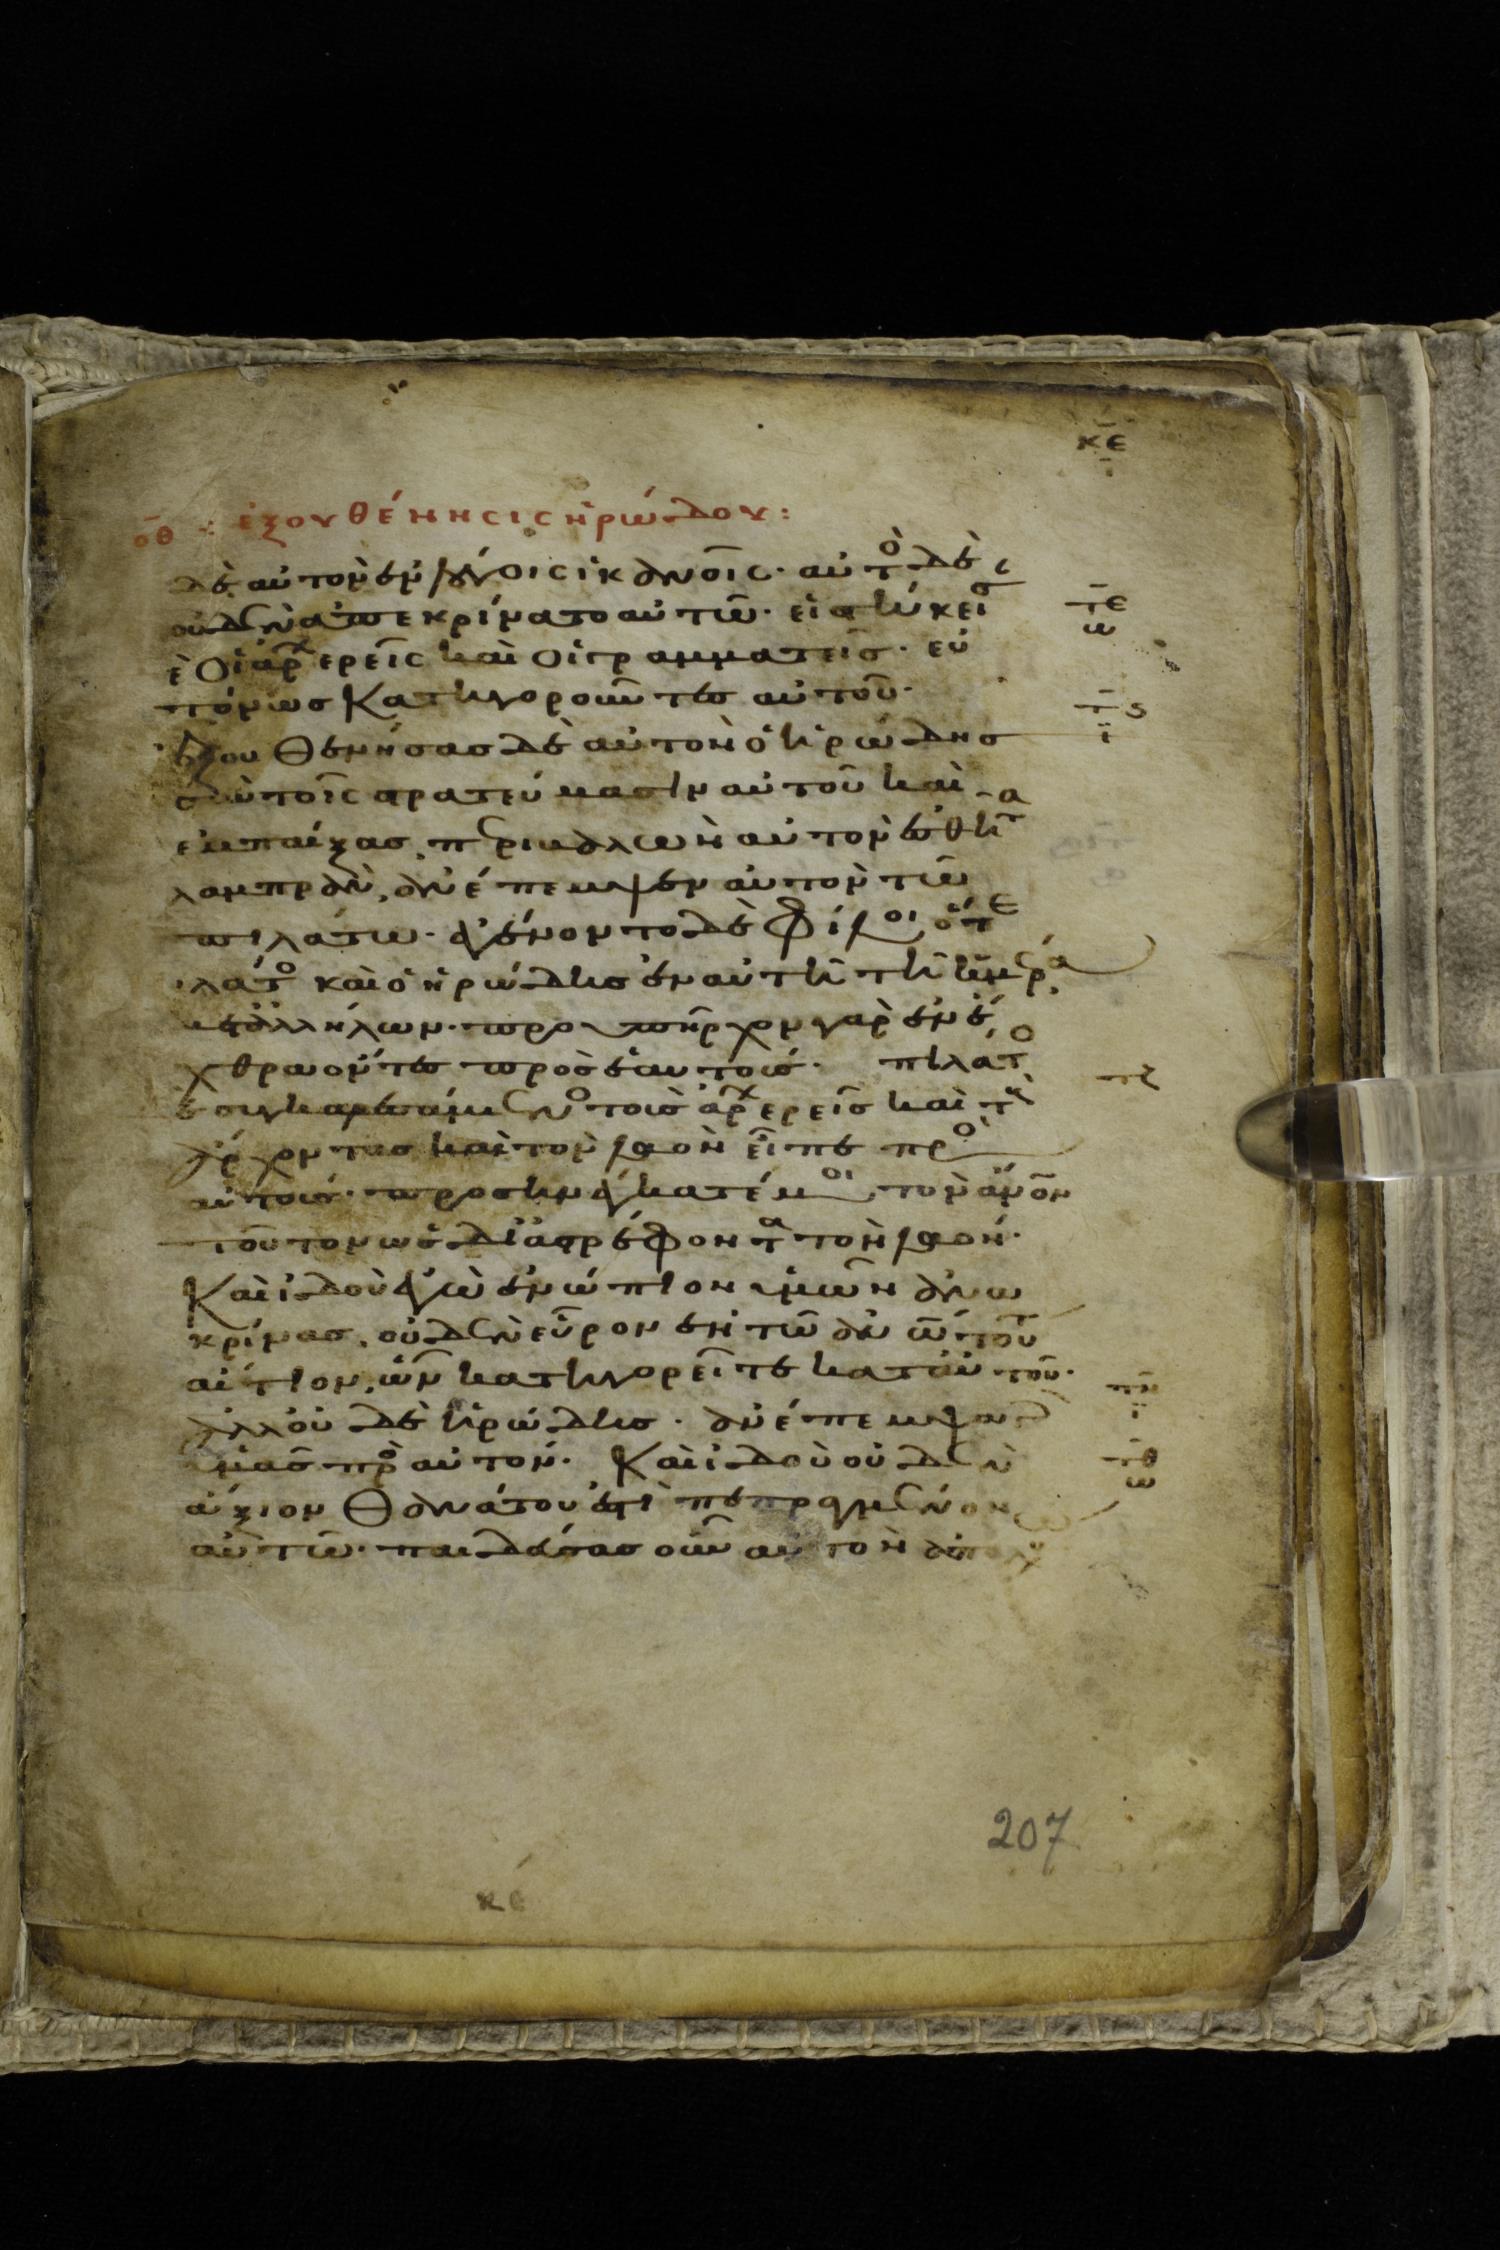 κε
οθ : ἐξουθένησις ἡρώδου :
δὲ αὐτὸν ἐν λόγοις ἱκανοῖς· αὐτὸ δὲ
οὐδὲν ἀπεκρίνατο αὐτῶ· εἱστήκεισ
τε
ω
ἐ οἱ ἀρχερεῖς καὶ οἱ γραμματεῖς· εὐ
τόνως κατηγοροῦντες αὐτοῦ·
τς
ι
ἐξουθενήσας δὲ αὐτὸν ὁ ἡρώδης
σὺν τοῖς στρατεύμασιν αὐτοῦ καὶ
ἐμπαίξας, περιβαλὼν αὐτὸν ἐσθῆτα
λαμπρὰν, ἀνέπεμψεν αὐτὸν τῶ
πιλάτω· ἐγένοντο δὲ φίλοι ὅ τε
πιλάτο καὶ ὁ ἡρώδης ἐν αὐτῆ τῆ ἡμέρα
μετ ἀλλήλων· προυπῆρχον γὰρ ἐν ἔ
χθρα ὄντες πρὸς ἑαυτούς· πιλάτο
τζ
δὲ συγκαλεσάμενο τοὺς ἀρχερεῖς καὶ τοὺ
ἄρχοντας καὶ τὸν λαὸν εἶπε πρὸ
αὐτούς· προσηνέγκατέ μοι τὸν ἄνον
τοῦτον ὡς διαστρέφοντα τὸν λαόν·
Καὶ ἰδοὺ ἐγὼ ἐνώπιον ὑμῶν ἀνα
κρίνας, οὐδὲν εὗρον ἐν τῶ ἀνῶ τούτω
αἴτιον, ὧν κατηγορεῖτε κατ αὐτοῦ·
τη
ι
ἀλλ οὐδὲ ἡρώδης· ἀνέπεμψα
ὑμᾶς πρὸ αὐτόν· Καὶ ἰδοὺ οὐδὲν
τθ
ω
ἄξιον θανάτου ἐστὶ πεπραγμένον
αὐτῶ· παιδεύσας οὖν αὐτὸν ἀπολύ
207
κε